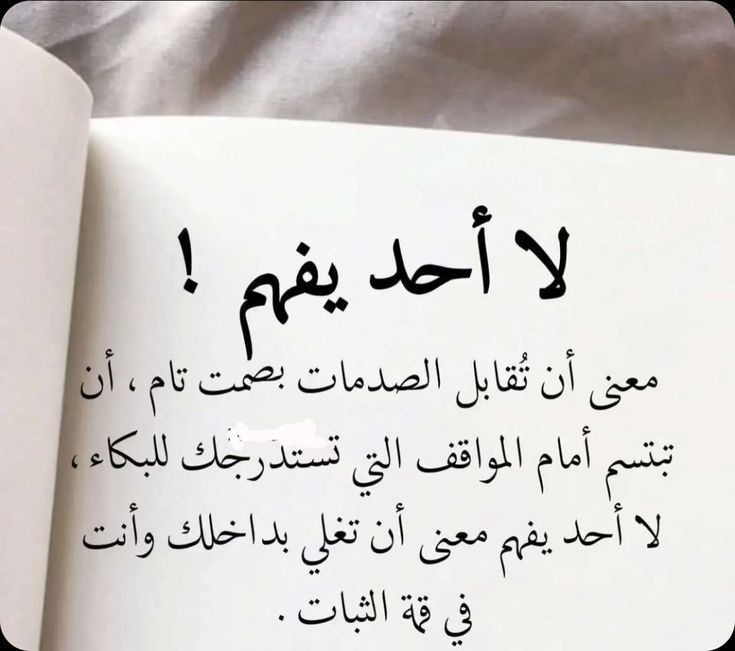 لا أحد يفهم !
معنى أن تُقابل الصدمات بصمت تام ، أن
تبتسم أمام المواقف التي تستدرجك للبكاء ،
لا أحد يفهم معنى أن تغلي بداخلك وأنت
في قمة الثبات .